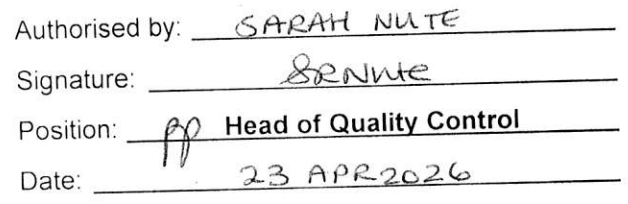 Authorised by: SARAH NUTE
Signature: SRNute
Position: pp Head of Quality Control
Date: 23 APR 2026